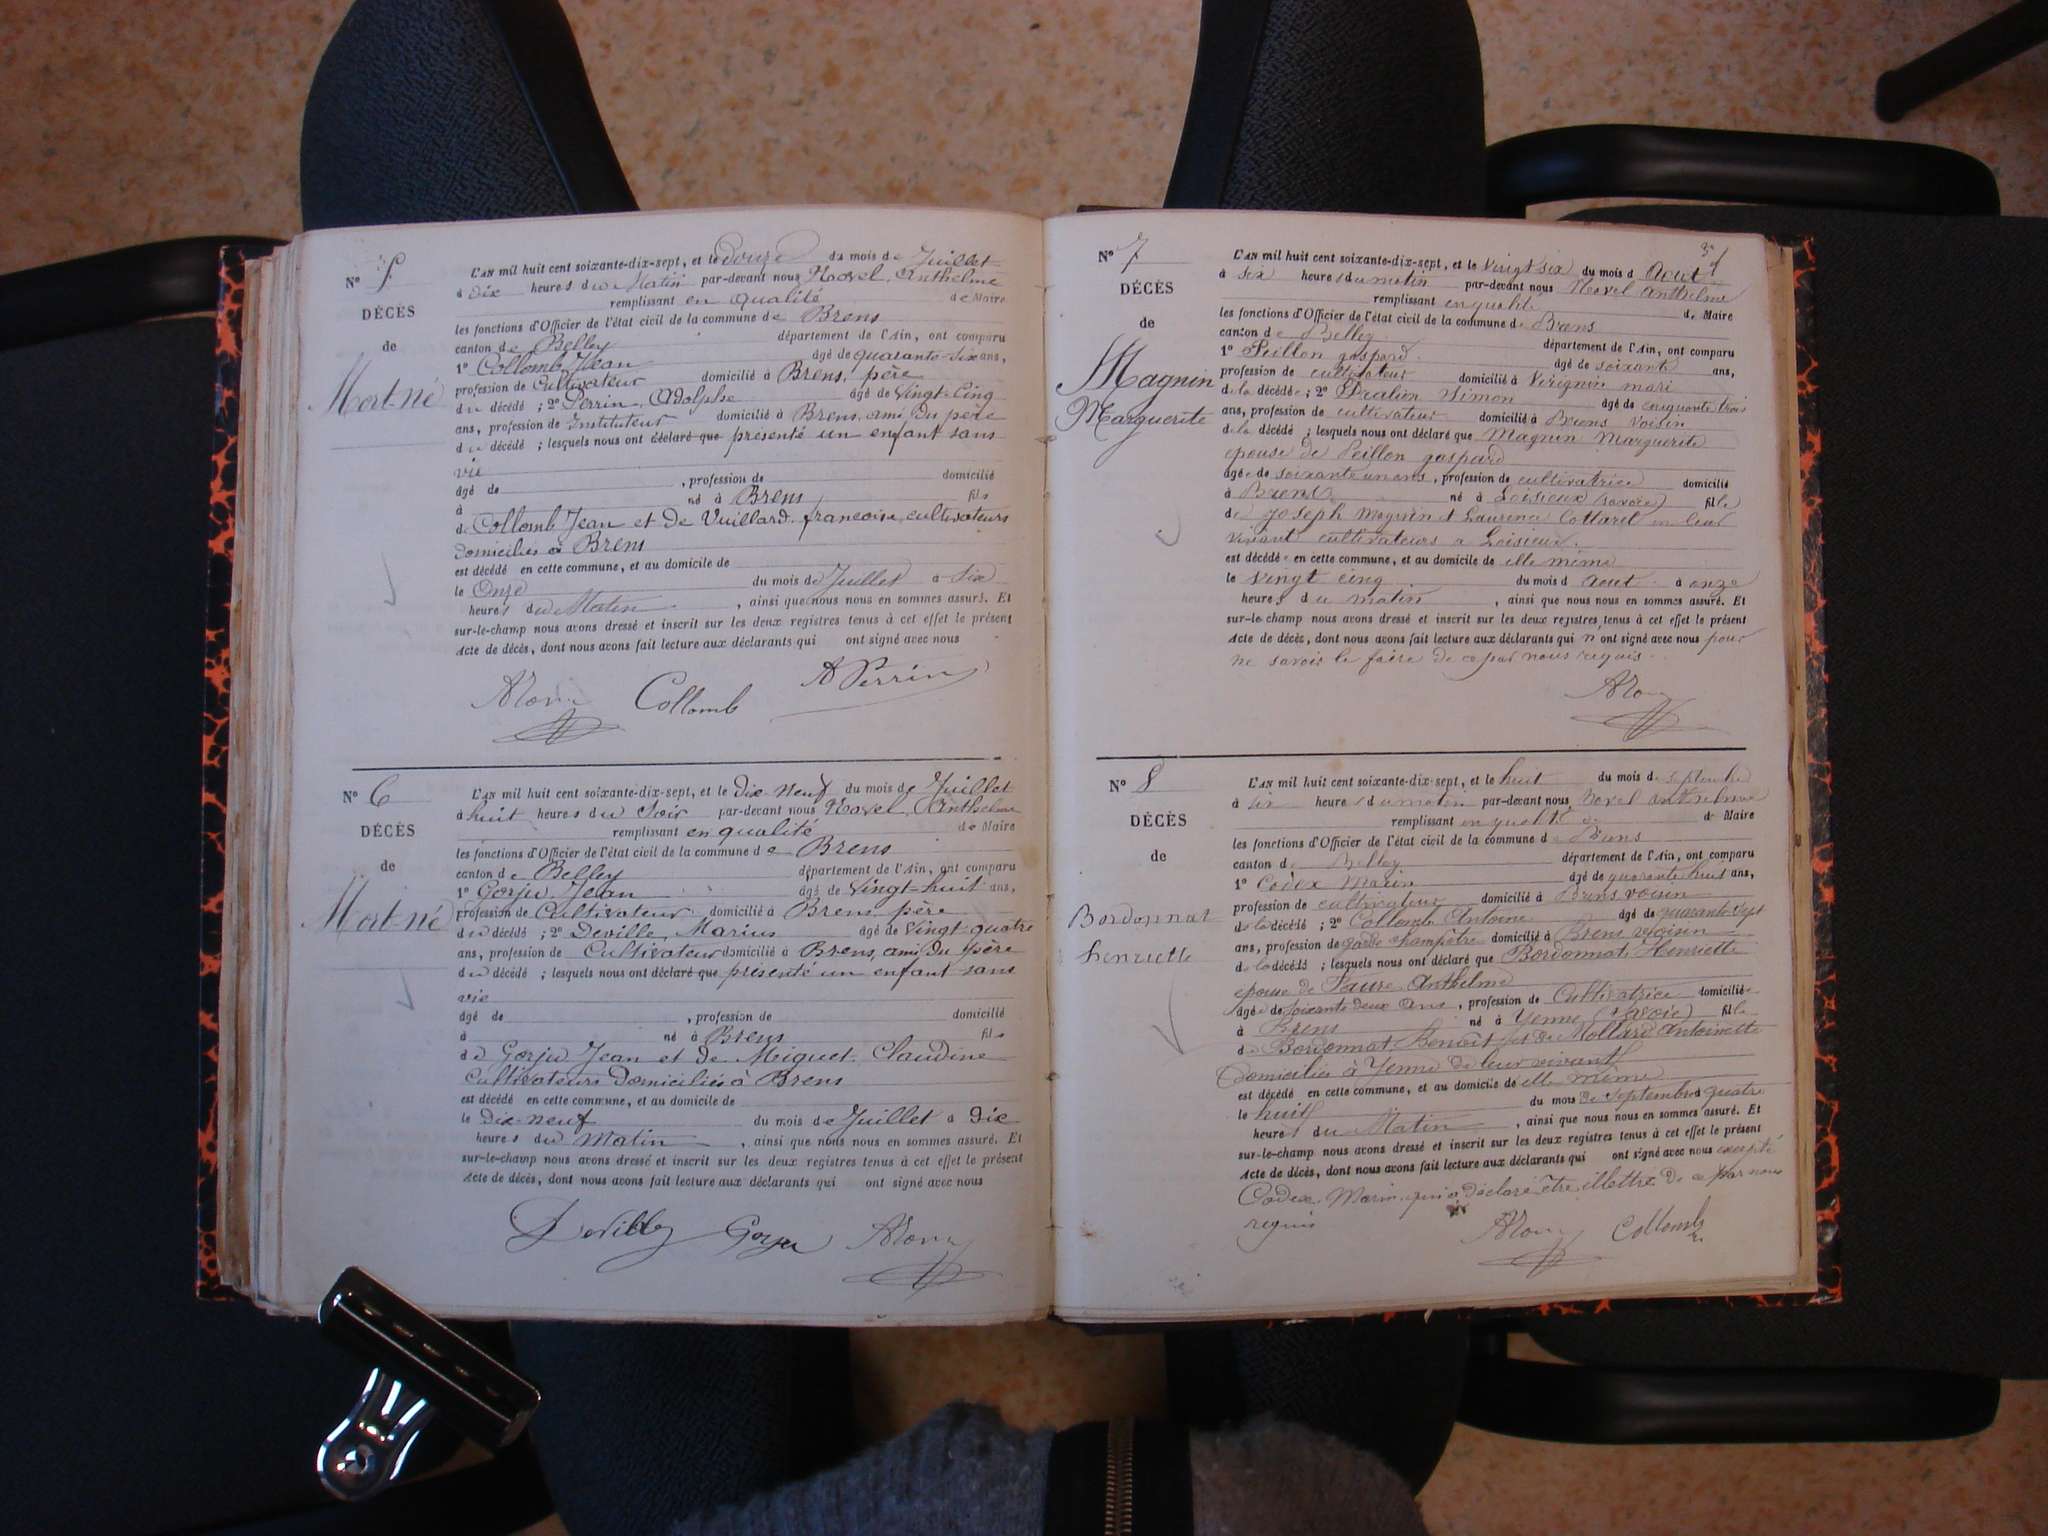 N° 5
DÉCÈS
de
Mort-né
L'AN mil huit cent soixante-dix-sept, et le Douze du mois de Juillet
à Dix heures du Matin par-devant nous Novel Anthelme
remplissant en qualité de Maire
les fonctions d'Officier de l'état civil de la commune de Brens
canton de Belley département de l'Ain, ont comparu
1° Collomb Jean âgé de quarante-six ans,
profession de Cultivateur domicilié à Brens, père
du décédé ; 2° Perrin Adolphe âgé de Vingt-Cinq
ans, profession de Instituteur domicilié à Brens, ami du père
du décédé ; lesquels nous ont déclaré que présenté un enfant sans
vie
âgé de , profession de domicilié
à né à Brens fils
de Collomb Jean et de Vuillard françoise, cultivateurs
domiciliés à Brens
est décédé en cette commune, et au domicile de
le Onze du mois de Juillet à Six
heures du Matin , ainsi que nous nous en sommes assuré. Et
sur-le-champ nous avons dressé et inscrit sur les deux registres tenus à cet effet le présent
Acte de décès, dont nous avons fait lecture aux déclarants qui ont signé avec nous
Collomb A Perrin
N° 6
DÉCÈS
de
Mort-né
L'AN mil huit cent soixante-dix-sept, et le Dix-neuf du mois de Juillet
à huit heures du Soir par-devant nous Novel Anthelme
remplissant en qualité de Maire
les fonctions d'Officier de l'état civil de la commune de Brens
canton de Belley département de l'Ain, ont comparu
1° Gorju Jean âgé de Vingt-huit ans,
profession de Cultivateur domicilié à Brens, père
du décédé ; 2° Deville Marius âgé de Vingt quatre
ans, profession de Cultivateur domicilié à Brens, ami du père
du décédé ; lesquels nous ont déclaré que présenté un enfant sans
vie
âgé de , profession de domicilié
à né à Brens fils
de Gorju Jean et de Miguet Claudine
Cultivateurs Domiciliés à Brens
est décédé en cette commune, et au domicile de
le Dix-neuf du mois de Juillet à Dix
heures du Matin , ainsi que nous nous en sommes assuré. Et
sur-le-champ nous avons dressé et inscrit sur les deux registres tenus à cet effet le présent
Acte de décès, dont nous avons fait lecture aux déclarants qui ont signé avec nous
Deville Gorju
N° 7
DÉCÈS
de
Magnin
Marguerite
L'AN mil huit cent soixante-dix-sept, et le Vingt six du mois d Aout
à six heures du matin par-devant nous Novel Anthelme
remplissant en qualité de Maire
les fonctions d'Officier de l'état civil de la commune de Brens
canton de Belley département de l'Ain, ont comparu
1° Peillon gaspard âgé de soixante ans,
profession de cultivateur domicilié à Virignin mari
de la décédée ; 2° Simon âgé de cinquante trois
ans, profession de cultivateur domicilié à Brens voisin
de la décédé ; lesquels nous ont déclaré que Magnin Marguerite
epouse de Peillon gaspard
âgée de soixante un ans, profession de cultivatrice domicilié
à Brens né à Loisieux (savoie) fille
de Joseph Magnin et Laurence Cottarel en leur
vivant cultivateurs a Loisieux
est décédé en cette commune, et au domicile de elle même
le vingt cinq du mois d aout à onze
heures du matin , ainsi que nous nous en sommes assuré. Et
sur-le-champ nous avons dressé et inscrit sur les deux registres tenus à cet effet le présent
Acte de décès, dont nous avons fait lecture aux déclarants qui n ont signé avec nous pour
ne savoir le faire de ce par nous requis
N° 8
DÉCÈS
de
Bordonnat
henriette
L'AN mil huit cent soixante-dix-sept, et le huit du mois de septembre
à six heures du matin par-devant nous Novel Anthelme
remplissant en qualité de Maire
les fonctions d'Officier de l'état civil de la commune de Brens
canton de Belley département de l'Ain, ont comparu
1° Codex Marin âgé de quarante huit ans,
profession de cultivateur domicilié à Brens voisin
de la décédé ; 2° Collomb Antoine âgé de quarante sept
ans, profession de garde champêtre domicilié à Brens voisin
de la décédé ; lesquels nous ont déclaré que Bordonnat Henriette
epouse de Faure Anthelme
âgée de soixante deux ans, profession de Cultivatrice domiciliée
à Brens né à Yenne (Savoie) fille
de Bordonnat Benoit et de Mollard Antoinette
domiciliés à Yenne de leur vivant
est décédé en cette commune, et au domicile de elle même
le huit du mois de septembre à quatre
heures du Matin , ainsi que nous nous en sommes assuré. Et
sur-le-champ nous avons dressé et inscrit sur les deux registres tenus à cet effet le présent
Acte de décès, dont nous avons fait lecture aux déclarants qui ont signé avec nous excepté
Codex Marin qui a déclaré être illettré de ce par nous
requis
Collomb